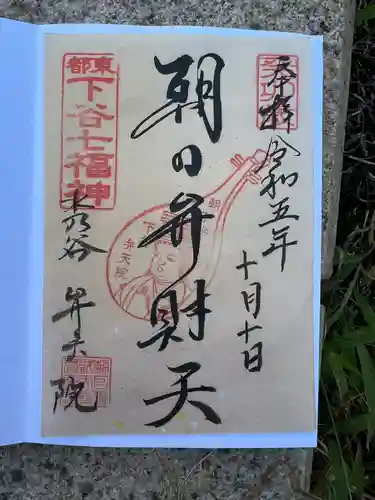 奉拝 令和五年
十月十日
朝日弁財天
東都
下谷七福神
水の谷 弁天院
朝日
弁天院